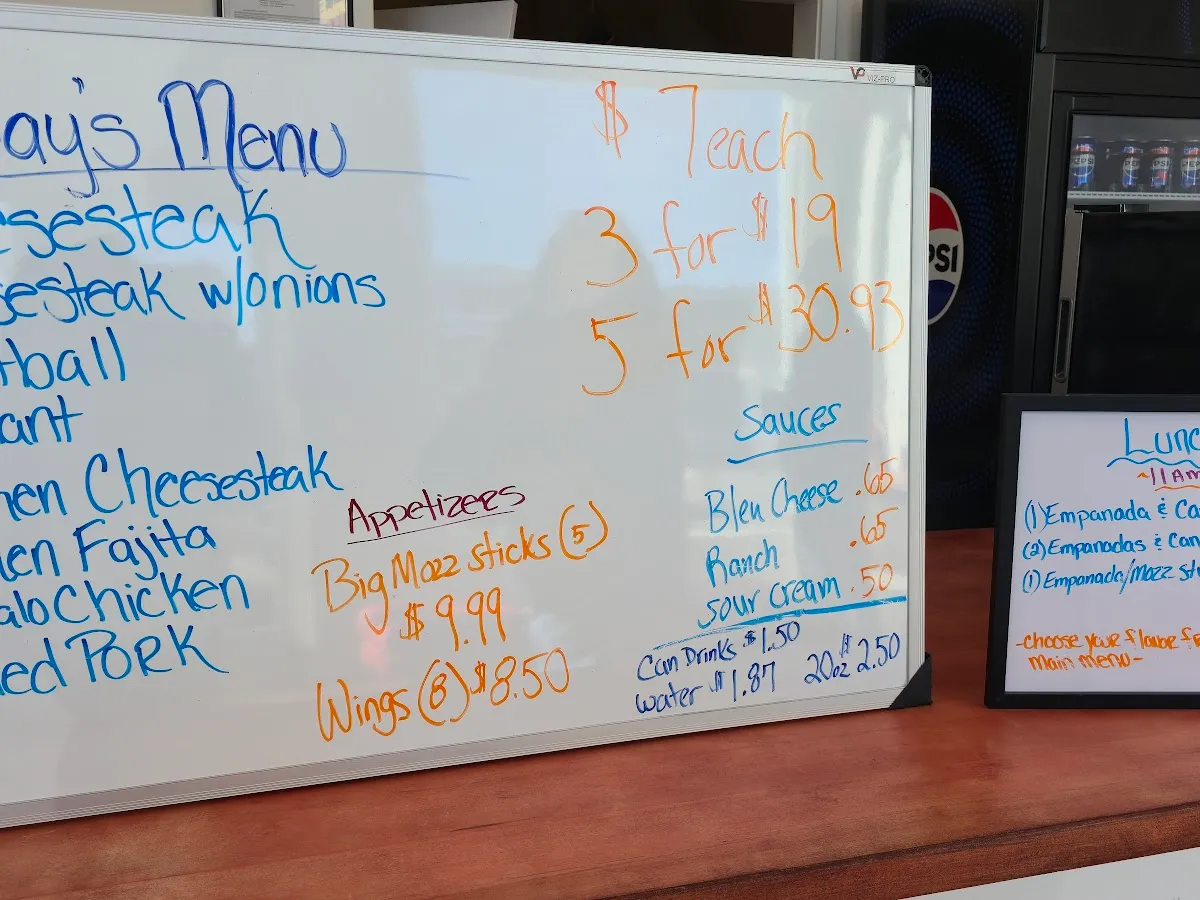 ay's Menu
esesteak
sesteak w/onions
tball
ant
hen Cheesesteak
ken Fajita
alo Chicken
led Pork
$7 each
3 for $19
5 for $30.93
Appetizers
Big Mozz sticks (5)
$9.99
Wings (8) $8.50
Sauces
Bleu Cheese .65
Ranch .65
sour cream .50
Can Drinks $1.50
water $1.87 20oz $2.50
VIZ-PRO
PSI
PEPSI
Lunc
~11AM
(1) Empanada & Ca
(2) Empanadas & Can
(1) Empanada/Mozz sti
-choose your flavor f
main menu-